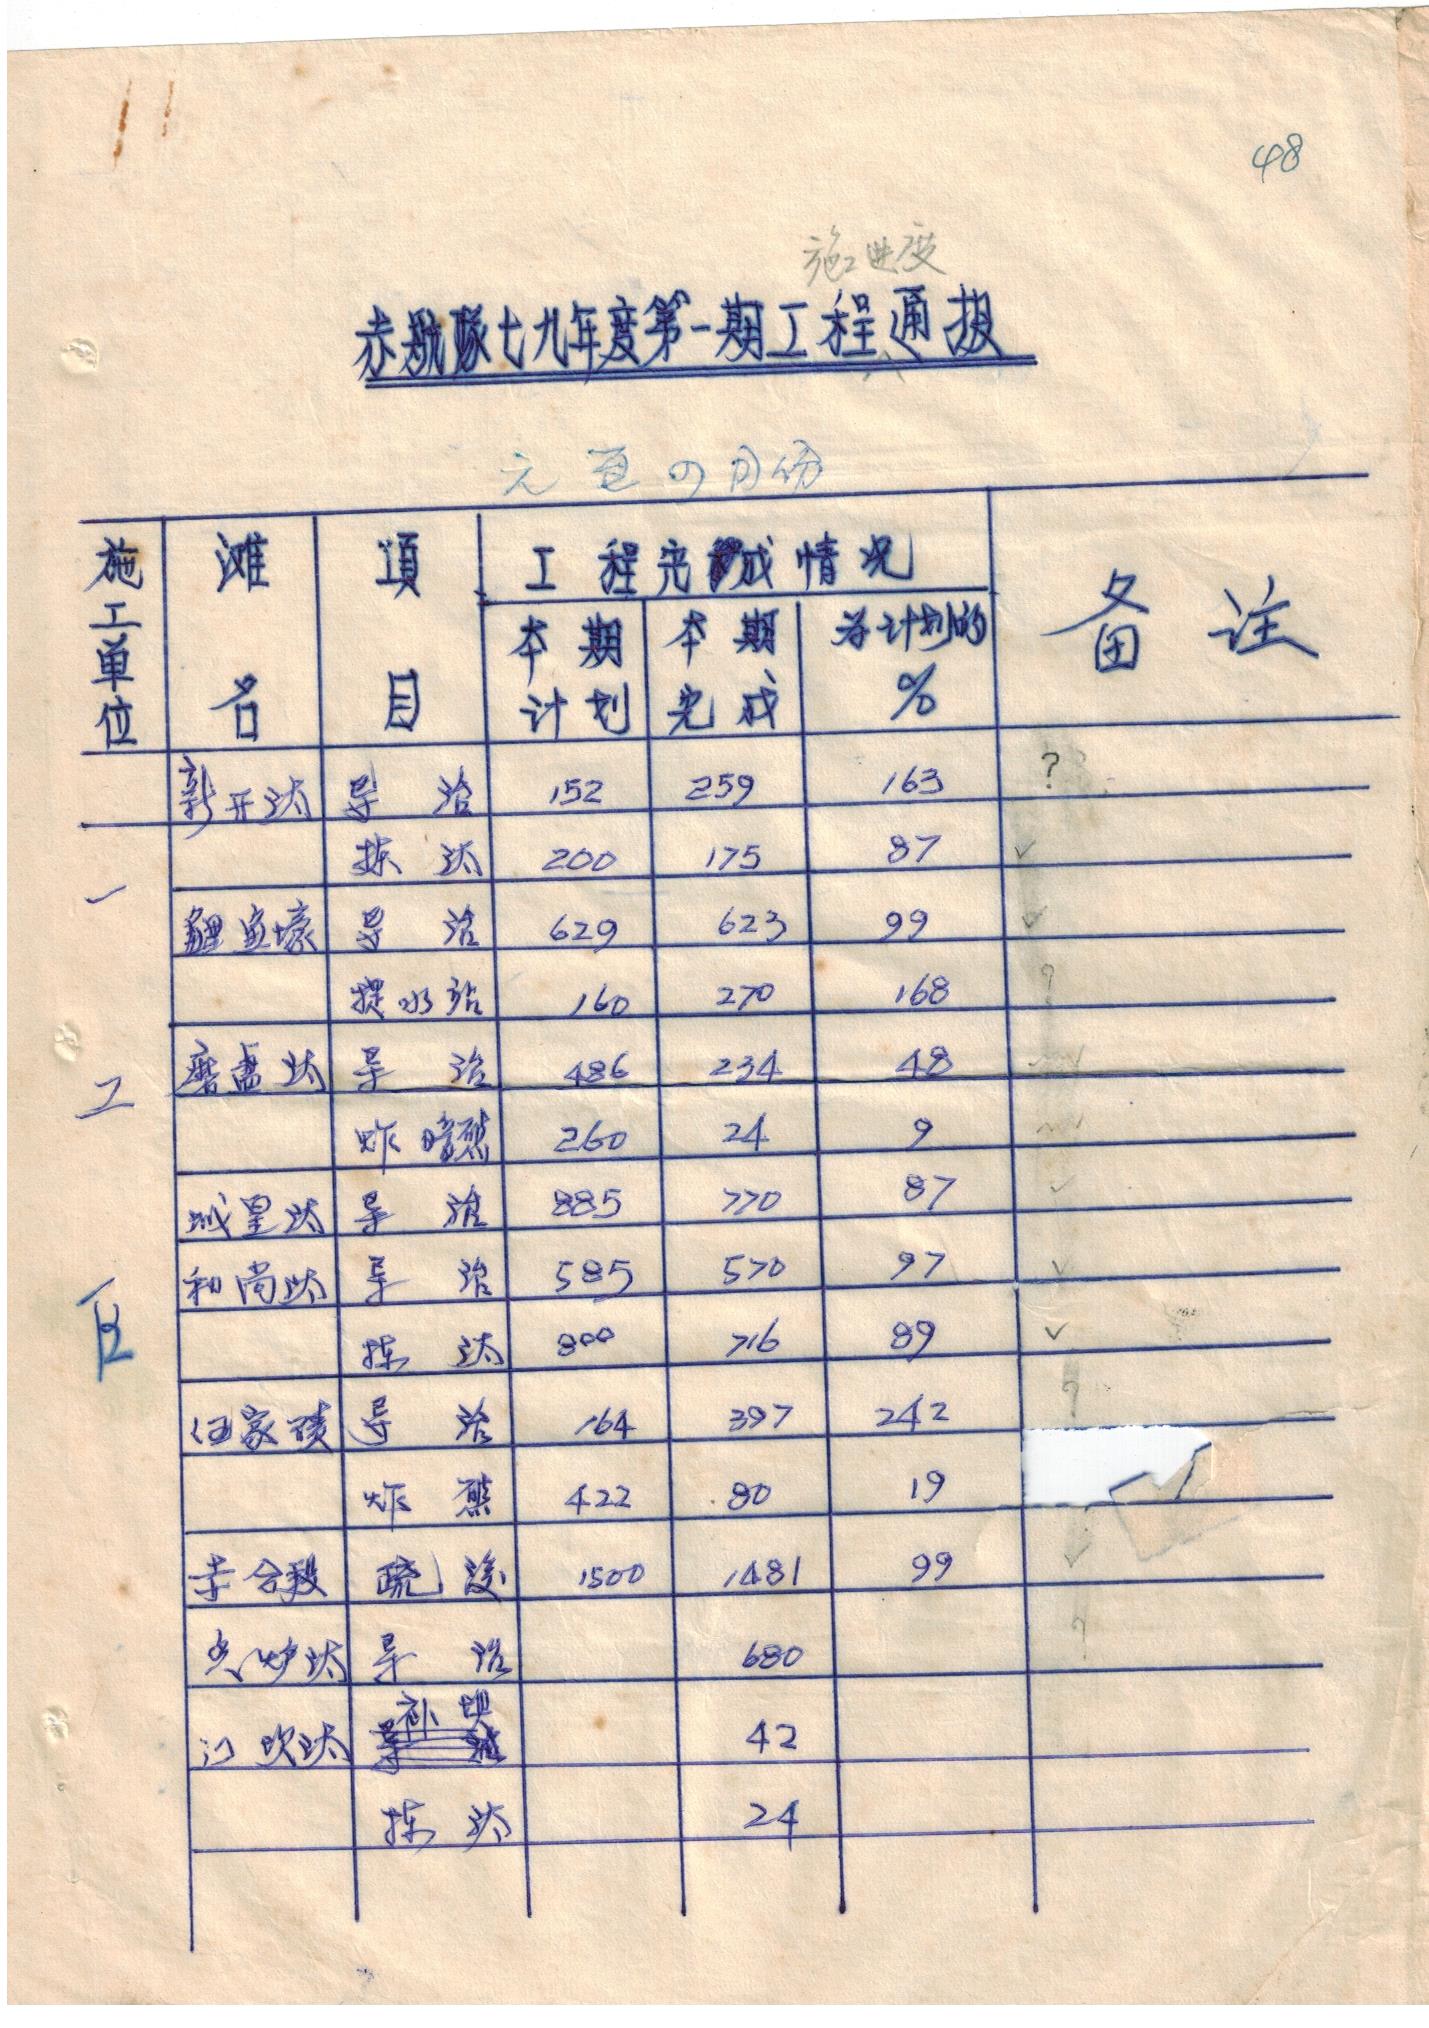 48
施工进度
赤航隊七九年度第一期工程通报
元至四月份
施工单位 滩名 項目 工程完成情况 备注
本期计划 本期完成 为计划的%
新开汰 导治 152 259 163 ?
拣汰 200 175 87 ✓
鯉鱼壕 导治 629 623 99 ✓
提水站 160 270 168 ?
磨盘汰 导治 486 234 48
炸暗礁 260 24 9
城皇汰 导治 885 770 87 ✓
和尚汰 导治 585 570 97 ✓
拣汰 800 716 89 ✓
伍家碛 导治 164 397 242 ?
炸礁 422 80 19
赤合段 疏浚 1500 1481 99 ✓
导治 680 ?
门坎汰 补坝 42
拣汰 24
一工区